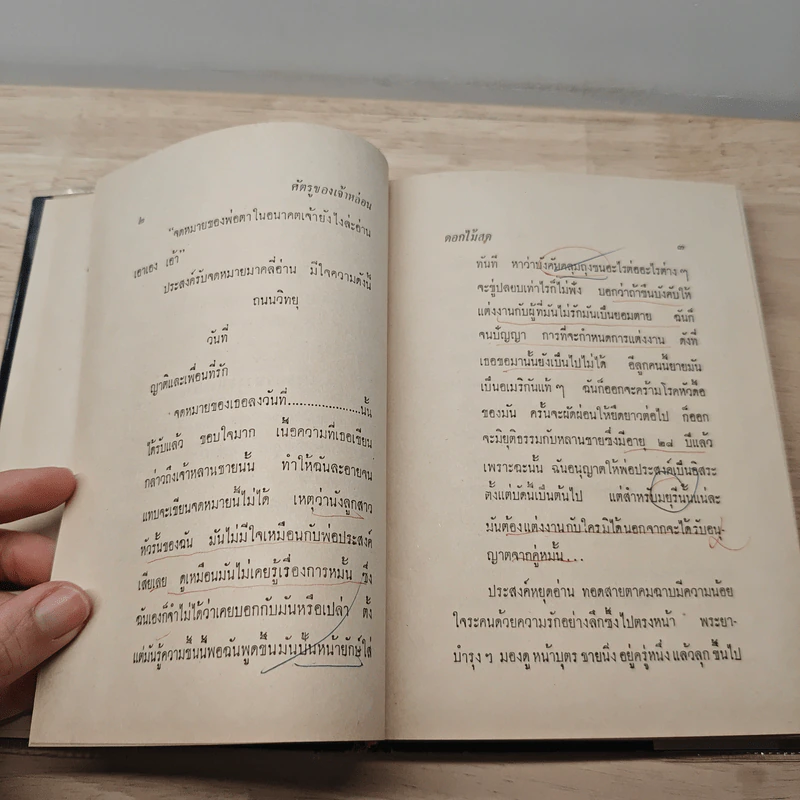 ๒
ศัตรูของเจ้าหล่อน
"จดหมายของพ่อตาในอนาคตเจ้ายังไงล่ะอ่าน
เอาเอง เอ้า"
ประสงค์รับจดหมายมาคลี่อ่าน มีใจความดังนี้
ถนนวิทยุ
วันที่
ญาติและเพื่อนที่รัก
จดหมายของเธอลงวันที่....................นั้น
ได้รับแล้ว ขอบใจมาก เนื้อความที่เธอเขียน
กล่าวถึงเจ้าหลานชายนั้น ทำให้ฉันละอายจน
แทบจะเขียนจดหมายนี้ไม่ได้ เหตุว่านังลูกสาว
หัวรั้นของฉัน มันไม่มีใจเหมือนกับพ่อประสงค์
เสียเลย ดูเหมือนมันไม่เคยรู้เรื่องการหมั้น ซึ่ง
ฉันเองก็จำไม่ได้ว่าเคยบอกกับมันหรือเปล่า ตั้ง
แต่มันรู้ความขึ้นนี้พอฉันพูดขึ้นมันปั้นหน้ายักษ์ใส่
ดอกไม้สด
๓
ทันที หาว่าบังคับคลุมถุงชนอะไรต่ออะไรต่างๆ
จะขู่ปลอบเท่าไรก็ไม่ฟัง บอกว่าถ้าขืนบังคับให้
แต่งงานกับผู้ที่มันไม่รักมันเป็นยอมตาย ฉันก็
จนปัญญา การที่จะกำหนดการแต่งงาน ดังที่
เธอขอมานั้นยังเป็นไปไม่ได้ อีลูกคนนี้ยายมัน
เป็นอเมริกันแท้ๆ ฉันก็ออกจะคร้ามโรคหัวดื้อ
ของมัน ครั้นจะผัดผ่อนให้ยืดยาวต่อไป ก็ออก
จะมิยุติธรรมกับหลานชายซึ่งมีอายุ ๒๘ ปีแล้ว
เพราะฉะนั้น ฉันอนุญาตให้พ่อประสงค์เป็นอิสระ
ตั้งแต่บัดนี้เป็นต้นไป แต่สำหรับมยุรีนั้นแน่ละ
มันต้องแต่งงานกับใครมิได้นอกจากจะได้รับอนุ-
ญาตจากคู่หมั้น...
ประสงค์หยุดอ่าน ทอดสายตาคมฉาบมีความน้อย
ใจระคนด้วยความรักอย่างลึกซึ้งไปตรงหน้า พระยา-
บำรุงๆ มองดูหน้าบุตรชายนิ่งอยู่ครู่หนึ่ง แล้วลุกขึ้นไป